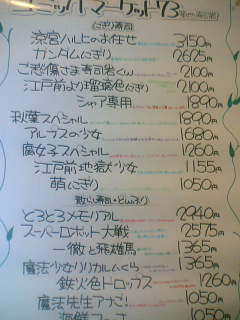 コミックマーケット73
にぎり寿司
涼宮ハルヒのお任せ 3150円
ガンダムにぎり 2625円
ご愁傷さま寿司岩くん 2100円
江戸前より瑠璃色にぎり 2100円
シャア専用 1890円
秋葉スペシャル 1890円
アルプスの少女 1680円
腐女子スペシャル 1260円
江戸前地獄少女 1155円
萌にぎり 1050円
散らし寿司・どんぶり
とろとろメモリアル 2940円
スーパーロボット大戦 2575円
一徹と飛雄馬 1365円
魔法少女リリカルいくら 1365円
鉄火色ドロップス 1260円
魔法先生アナご! 1050円
海鮮 1050円